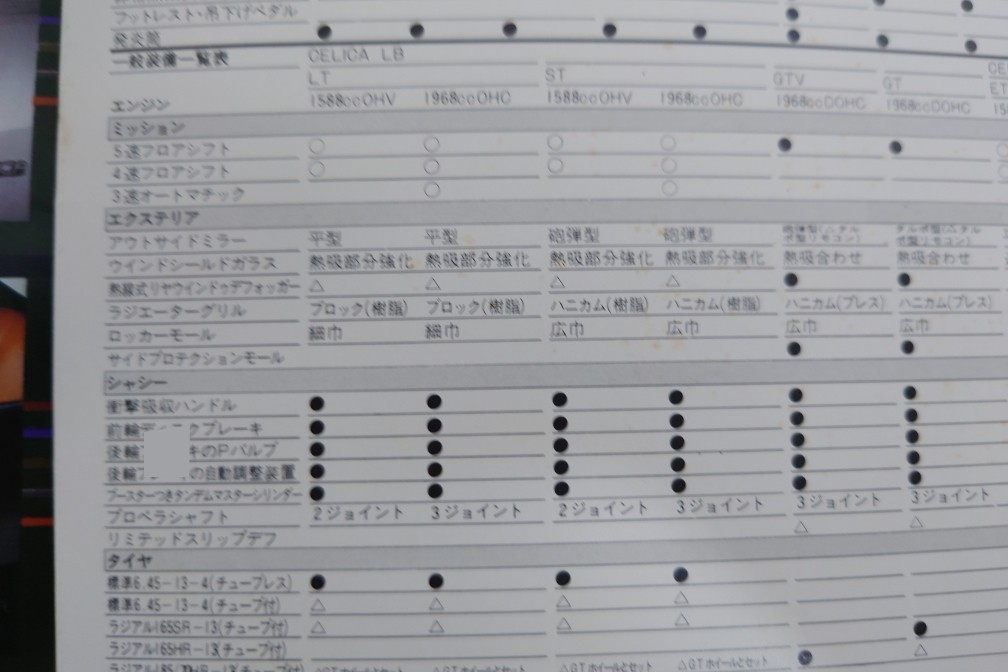 フットレスト・吊下げペダル
発炎筒 ● ● ● ● ● ● ● ●
一般装備一覧表 CELICA LB
LT ST GTV GT
エンジン 1588ccOHV 1968ccOHC 1588ccOHV 1968ccOHC 1968ccDOHC 1968ccDOHC
ミッション
5速フロアシフト ○ ○ ○ ○ ● ●
4速フロアシフト ○ ○ ○ ○
3速オートマチック ○ ○
エクステリア
アウトサイドミラー 平型 平型 砲弾型 砲弾型
ウインドシールドガラス 熱吸部分強化 熱吸部分強化 熱吸部分強化 熱吸部分強化 熱吸合わせ 熱吸合わせ
熱線式リヤウインドゥデフォッガー △ △ △ △ ● ●
ラジエーターグリル ブロック(樹脂) ブロック(樹脂) ハニカム(樹脂) ハニカム(樹脂) ハニカム(プレス) ハニカム(プレス)
ロッカーモール 細巾 細巾 広巾 広巾 広巾 広巾
サイドプロテクションモール ● ●
シャシー
衝撃吸収ハンドル ● ● ● ● ● ●
前輪 クブレーキ ● ● ● ● ● ●
後輪 キのPバルブ ● ● ● ● ● ●
後輪 の自動調整装置 ● ● ● ● ● ●
ブースターつきタンデムマスターシリンダー ● ● ● ● ● ●
プロペラシャフト 2ジョイント 3ジョイント 2ジョイント 3ジョイント 3ジョイント 3ジョイント
リミテッドスリップデフ △ △
タイヤ
標準6.45-13-4(チューブレス) ● ● ● ●
標準6.45-13-4(チューブ付) △ △ △ △
ラジアル165SR-13(チューブ付) △ △ △ △ ●
ラジアル165HR-13(チューブ付) △
△GTホイールとセット △GTホイールとセット △GTホイールとセット △GTホイールとセット ●